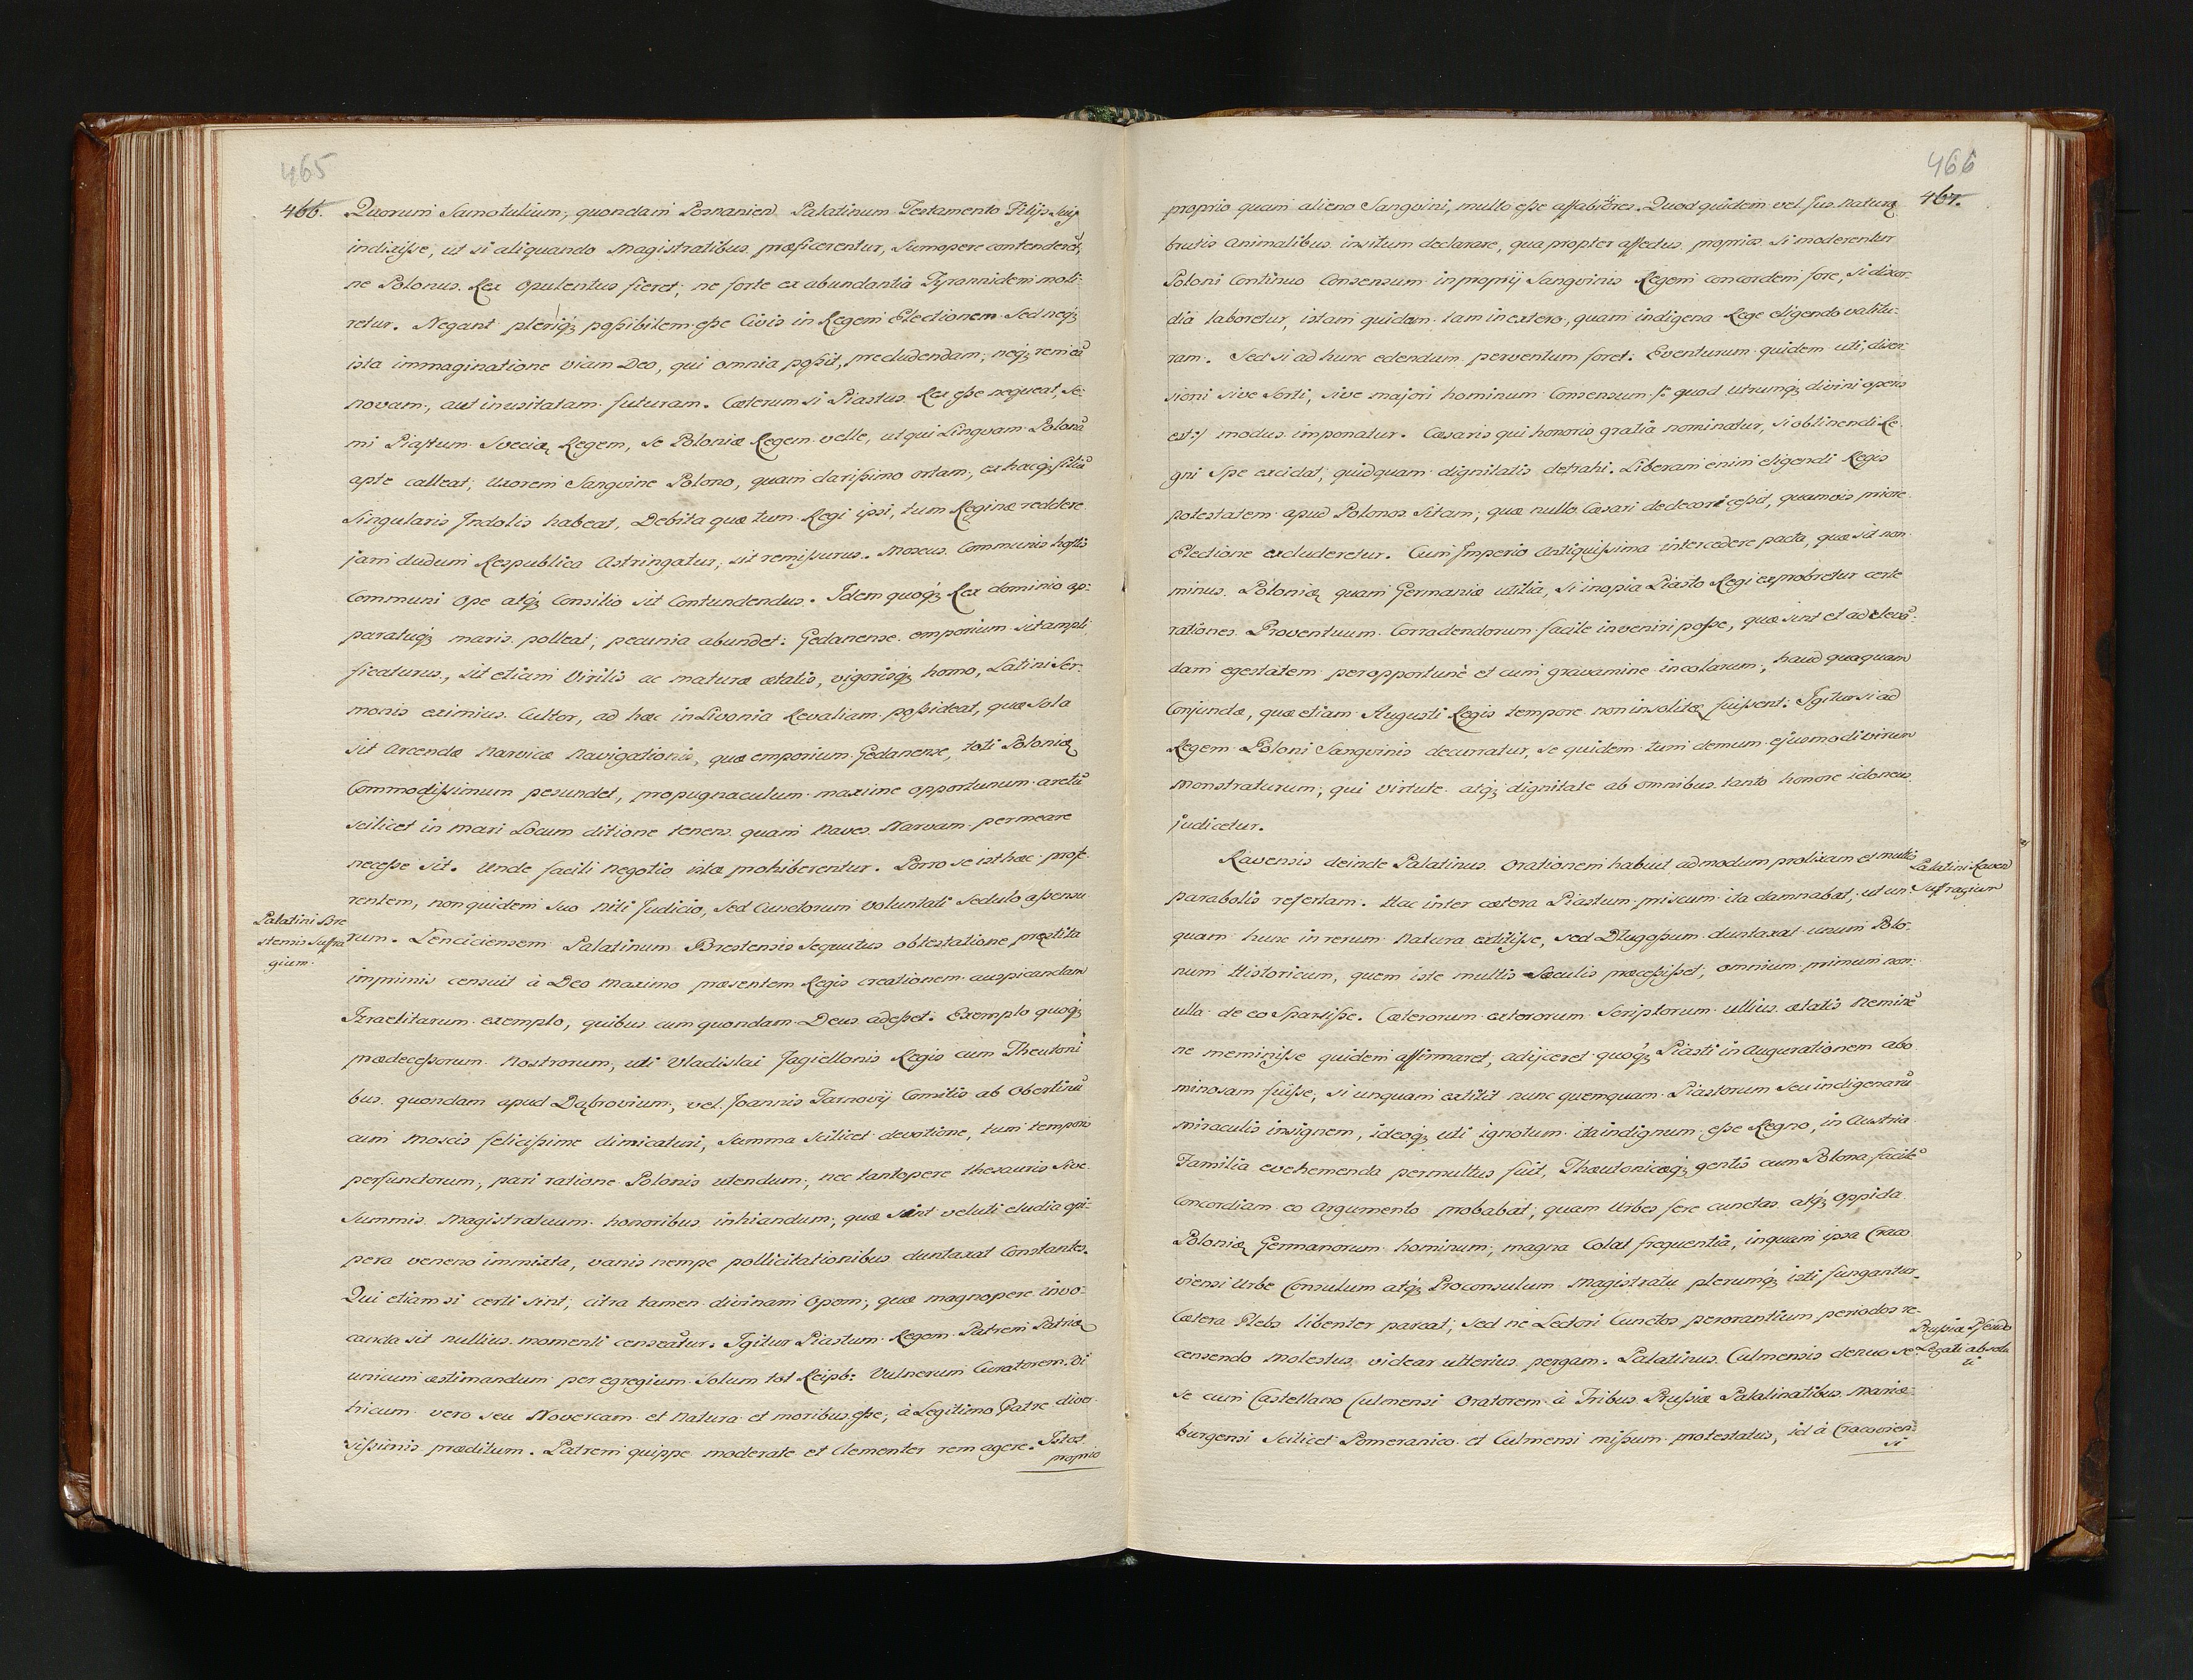 465
466. Quorum Samotulium, quondam Posnanien Palatinum Testamento Filijs suis
indixiſse, ut si aliquando Magistratibus præficerentur, Sumopere contenderēt,
ne Polonus Rex Opulentus fieret, ne forte ex abundantia Tyrannidem moli-
retur. Negant pleriq; poſsibilem eſse Civis in Regem Electionem. Sed neq;
ista immaginatione viam Deo, qui omnia poſsit, precludendam, neq; rem eā
novam, aut inusitatam futuram. Cæterum si Piastus Rex eſse nequeat, Se-
mi Piastum Sveciæ Regem, se Poloniæ Regem velle, ut qui Linguam Polonā
apte calleat, Uxorem Sangvine Polono, quam clariſsimo ortam, ex hacq; filiū
Singularis Indolis habeat, Debita quæ tum Regi ipsi, tum Reginæ reddere
jam dudum Respublica Astringatur, sit remiſsurus. Moscus Communis hostis
Communi Ope atq; Consilio sit Contundendus. Idem quoq; Rex dominio ap-
paratuq; maris polleat, pecunia abundet: Gedanense emporium sit ampli
ficaturus, sit etiam Virilis ac maturæ ætatis, vigorisq; homo, Latini Ser-
monis eximius Cultor, ad hæc in Livonia Revaliam poſsideat, quæ Sola
sit Arcendæ Narvicæ Navigationis, quæ emporium Gedanense, toti Poloniæ
Commodiſsimum pesundet, propugnaculum maxime opportunum arctū
scilicet in mari Locum ditione tenens quam Naves Narvam permeare
neceſse sit. Unde facili Negotio ista prohiberentur. Porro se isthæc profe
rentem, non quidem Suo Niti Judicio, Sed Cunctorum Voluntati Sedulo aſsensu
Palatini Bre
stensis Suffra
gium.
rum. Lenciciensem Palatinum Brestensis Sequutus obtestatione præstita
imprimis censuit à Deo Maximo præsentem Regis creationem auspicandam
Izraelitarum exemplo, quibus cum quondam Deus adeſset: Exemplo quoq;
prædeceſsorum Nostrorum, uti Vladislai Jagiellonis Regis cum Theutoni
bus quondam apud Dąbrovium, vel Joannis Tarnovij Comitis ab Obertinū
cum Moscis feliciſsime dimicaturi, Summa Scilicet devotione, tum temporis
perfunctorum, pari ratione Polonis utendum, nec tantopere thesauris Sive
Summis Magistratuum honoribus inhiandum, quæ sint veluti eludia opi-
pera veneno immixta, vanis nempe pollicitationibus duntaxat Constantes.
Qui etiamsi certi sint, citra tamen divinam Opem, quæ magnopere invo-
canda sit nullius momenti censeatur. Igitur Piastum Regem Patrem Patriæ
unicum æstimandum per egregium Solum tot Reipb: Vulnerum Curatorem. Vi
tricum vero seu Novercam et Natura et moribus eſse, à Legitimo Patre diver
siſsimis præditum. Patrem quippe moderate et Clementer rem agere. Istos
proprio
466
467.
proprio quam alieno Sangvini, multo eſse affabiliores. Quod quidem vel Jus Naturæ
brutis Animalibus insitum declarare, qua propter affectus proprios si moderentur
Poloni Continuo Consensum in proprij Sangvinis Regem concordem fore, Si discor-
dia laboretur, istam quidem tam in extero, quam indigena Rege eligendo valitu-
ram. Sed si ad hunc edendum perventum foret. Eventurum quidem uti, discen-
sioni sive Sorti, sive majori hominum Consensum /: quod Utrumq; divini operis
est :/ modus imponatur. Cæsaris qui honoris gratia nominatur, si obtinendi Re-
gni Spe excidat, quidquam dignitatis detrahi. Liberam enim eligendi Regis
potestatem apud Polonos Sitam, quæ nullo Cæsari dedecori ceſsit, quamvis priore
Electione excluderetur. Cum Imperio Antiquiſsima intercedere pacta, quæ sit non
minus Poloniæ quam Germaniæ utilia, Si inopia Piasto Regi exprobretur certe
rationes Proventuum Corradendorum facile inveniri poſse, quæ sint et ad elevā-
dam egestatem per opportunè et cum gravamine incolarum, haud quaquam
Conjunctæ, quæ etiam Augusti Regis tempore non insolitæ fuiſsent. Igitur si ad
Regem Poloni Sangvinis decurratur, se quidem tum demum ejusmodi virum
Monstraturum, qui virtute atq; dignitate ab omnibus tanto honore idoneus
judicetur.
Palatini Raven
Suffragium
Ravensis deinde Palatinus Orationem habuit admodum prolixam et multis
parabolis refertam. Hac inter cætera Piastum priscum ita damnabat, ut un-
quam hunc in rerum Natura extitiſse, sed Dlugoſsum duntaxat unum Polo-
num Historicum, quem iste multis Sæculis præceſsiſset, omnium primum non-
ulla de eo Sparsiſse. Cæterorum exterorum Scriptorum ullius ætatis Neminē
ne meminiſse quidem affirmaret, adijceret quoq; Piasti in Augurationem abo
minosam fuiſse, si unquam extitit nunc quemquam Piastorum Seu indigenarū
miraculis insignem, ideoq; uti ignotum ita indignum eſse Regno, in Austria
Familia evehemenda permultus fuit, Theutonicæq; gentis cum Polona facilē
Concordiam eo Argumento probabat, quam Urbes fere cunctas atq; Oppida
Poloniæ Germanorum hominum, magna Colat frequentia, in quam ipsa Craco
viensi Urbe Consulum atq; Proconsulum Magistratu plerumq; isti fungantur.
Cætera Plebs libenter pareat, Sed ne Lectori Cunctos perorantium periodos re-
Pruſsiæ Pseudo
Legati absolu
ti
censendo Molestus videar ulterius pergam. Palatinus Culmensis denuo se
se cum Castellano Culmensi Oratorem à Tribus Pruſsiæ Palatinatibus Mariæ-
burgensi Scilicet Pomeranico et Culmensi miſsum protestatus, id à Cracovien-
si